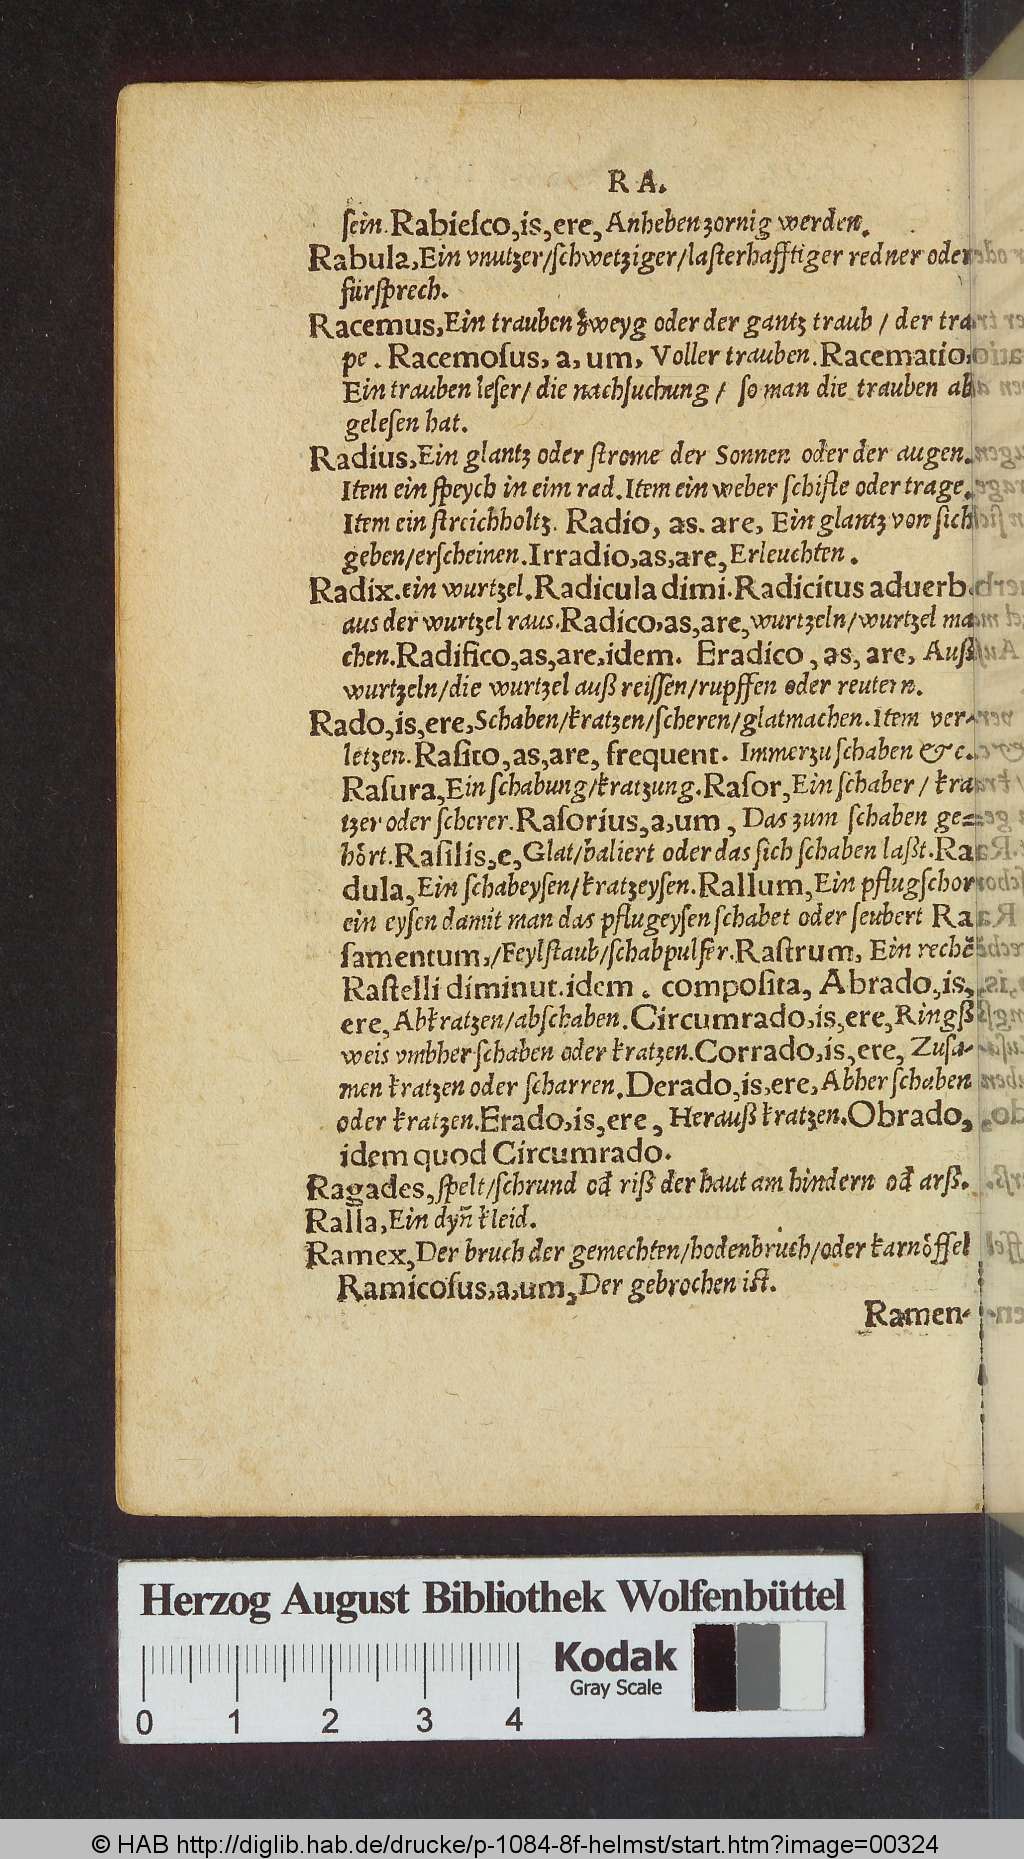 R A.
ſein. Rabieſco,is,ere, Anheben zornig werden.
Rabula, Ein vnutzer/ſchwetziger/laſterhafftiger redner oder
fürſprech.
Racemus, Ein trauben zweyg oder der gantz traub / der tra-
pe. Racemoſus, a, um, Voller trauben. Racematio,
Ein trauben leſer/ die nachſuchung / ſo man die trauben ab
geleſen hat.
Radius, Ein glantz oder ſtrome der Sonnen oder der augen.
Item ein ſpeych in eim rad. Item ein weber ſchifle oder trage.
Item ein ſtreichholtz. Radio, as. are, Ein glantz von ſich
geben/erſcheinen. Irradio,as,are, Erleuchten.
Radix. ein wurtzel. Radicula dimi. Radicitus aduerb.
aus der wurtzel raus. Radico,as,are, wurtzeln/wurtzel ma-
chen. Radifico,as,are,idem. Eradico, as, are, Auß
wurtzeln/die wurtzel auß reiſſen/rupffen oder reutern.
Rado,is,ere, Schaben/kratzen/ſcheren/glatmachen. Item ver-
letzen. Raſito,as,are, frequent. Immerzu ſchaben &c.
Raſura, Ein ſchabung/kratzung. Raſor, Ein ſchaber / kra-
tzer oder ſcherer. Raſorius,a,um, Das zum ſchaben ge-
hört. Raſilis,e, Glat/baliert oder das ſich ſchaben laßt. Ra-
dula, Ein ſchabeyſen/kratzeyſen. Rallum, Ein pflugſchor
ein eyſen damit man das pflugeyſen ſchabet oder ſeubert Ra
ſamentum,/Feylſtaub/ſchabpulfer. Raſtrum, Ein rechē
Raſtelli diminut. idem. compoſita, Abrado,is,
ere, Abkratzen/abſchaben. Circumrado,is,ere, Ringß
weis vmbher ſchaben oder kratzen. Corrado,is,ere, Zuſa-
men kratzen oder ſcharren. Derado,is,ere, Abher ſchaben
oder kratzen. Erado,is,ere, Herauß kratzen. Obrado,
idem quod Circumrado.
Ragades, ſpelt/ſchrund od̄ riß der haut am hindern od̄ arß.
Ralla, Ein dyn̄ kleid.
Ramex, Der bruch der gemechten/hodenbruch/oder karnöffel
Ramicoſus,a,um, Der gebrochen iſt.
Ramen-
Herzog August Bibliothek Wolfenbüttel
Kodak
Gray Scale
0 1 2 3 4
© HAB http://diglib.hab.de/drucke/p-1084-8f-helmst/start.htm?image=00324